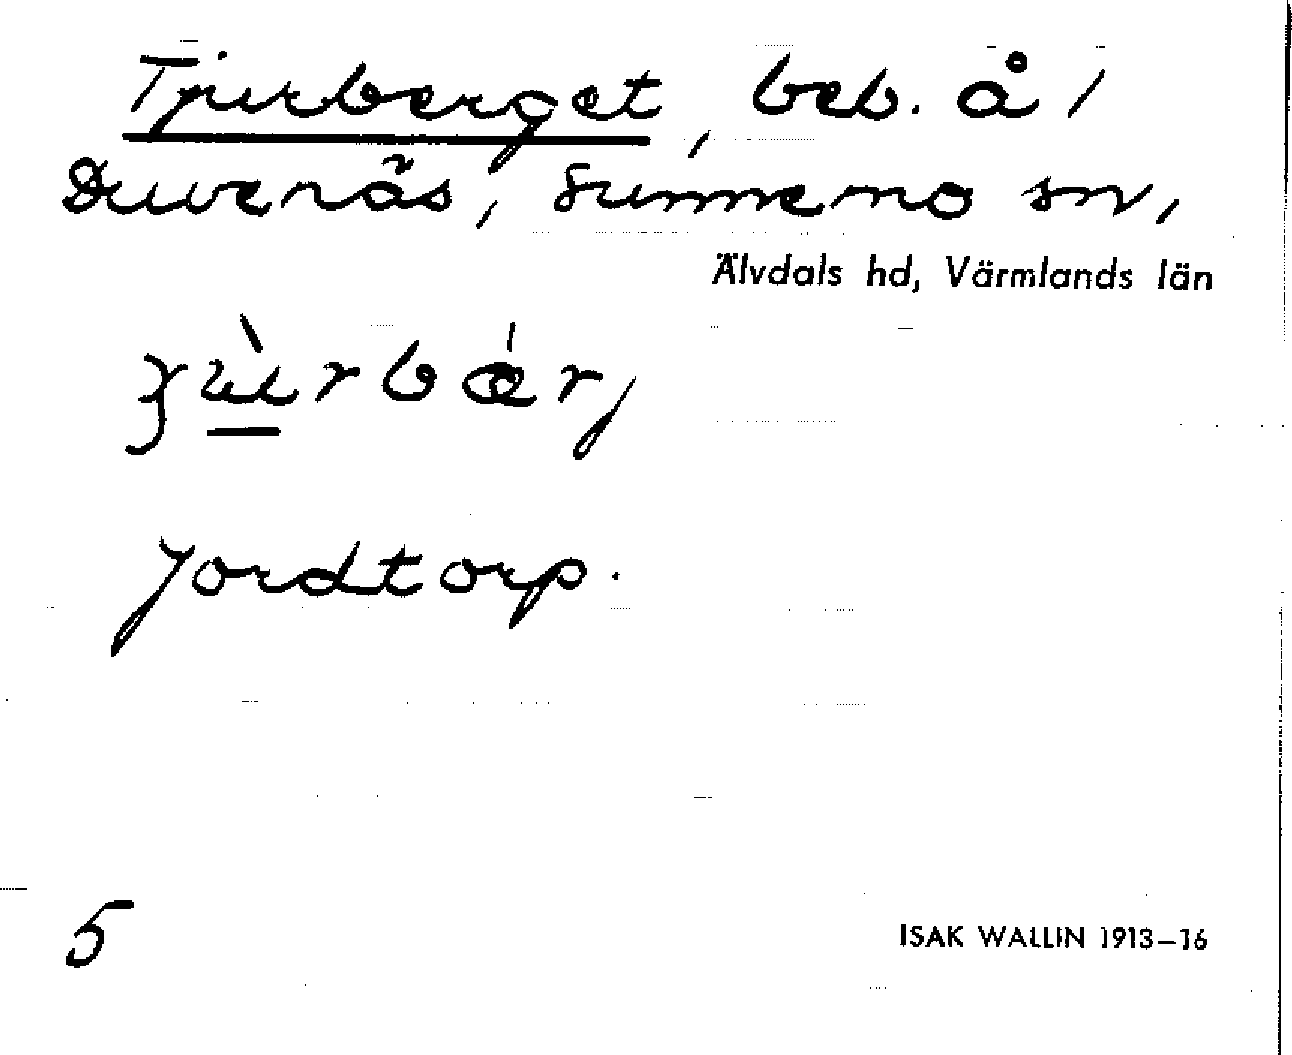 Tjurberget, beb. å /
Duvenäs, Sunnemo sn,
Älvdals hd, Värmlands län
jordtorp.
5
ISAK WALLIN 1913–16